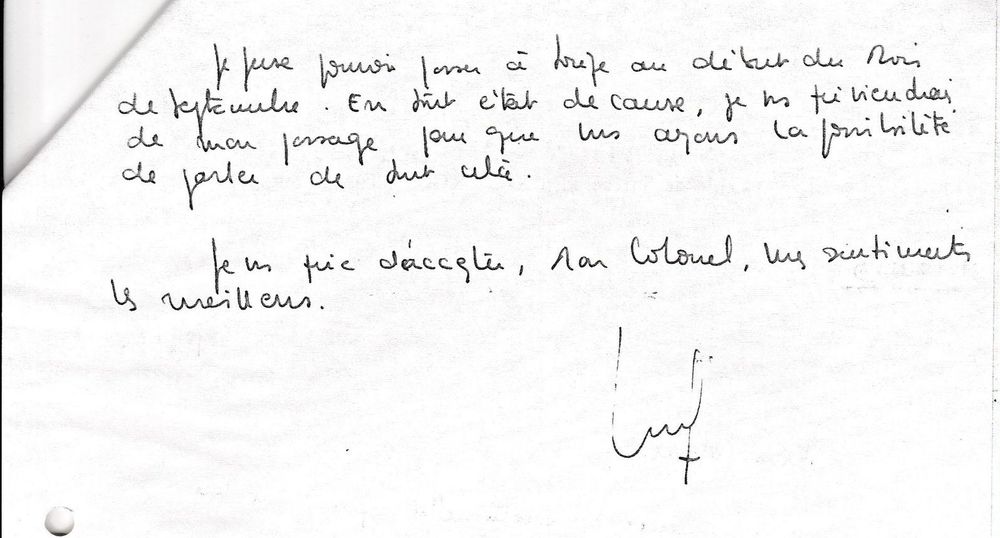 Je pense pouvoir passer à au début du Mois
de Septembre. En tout état de cause, je vs préviendrai
de mon passage pour que ns ayons la possibilité
de parler de tout cela.
Je vs prie d'accepter, Mon Colonel, mes sentiments
les meilleurs.